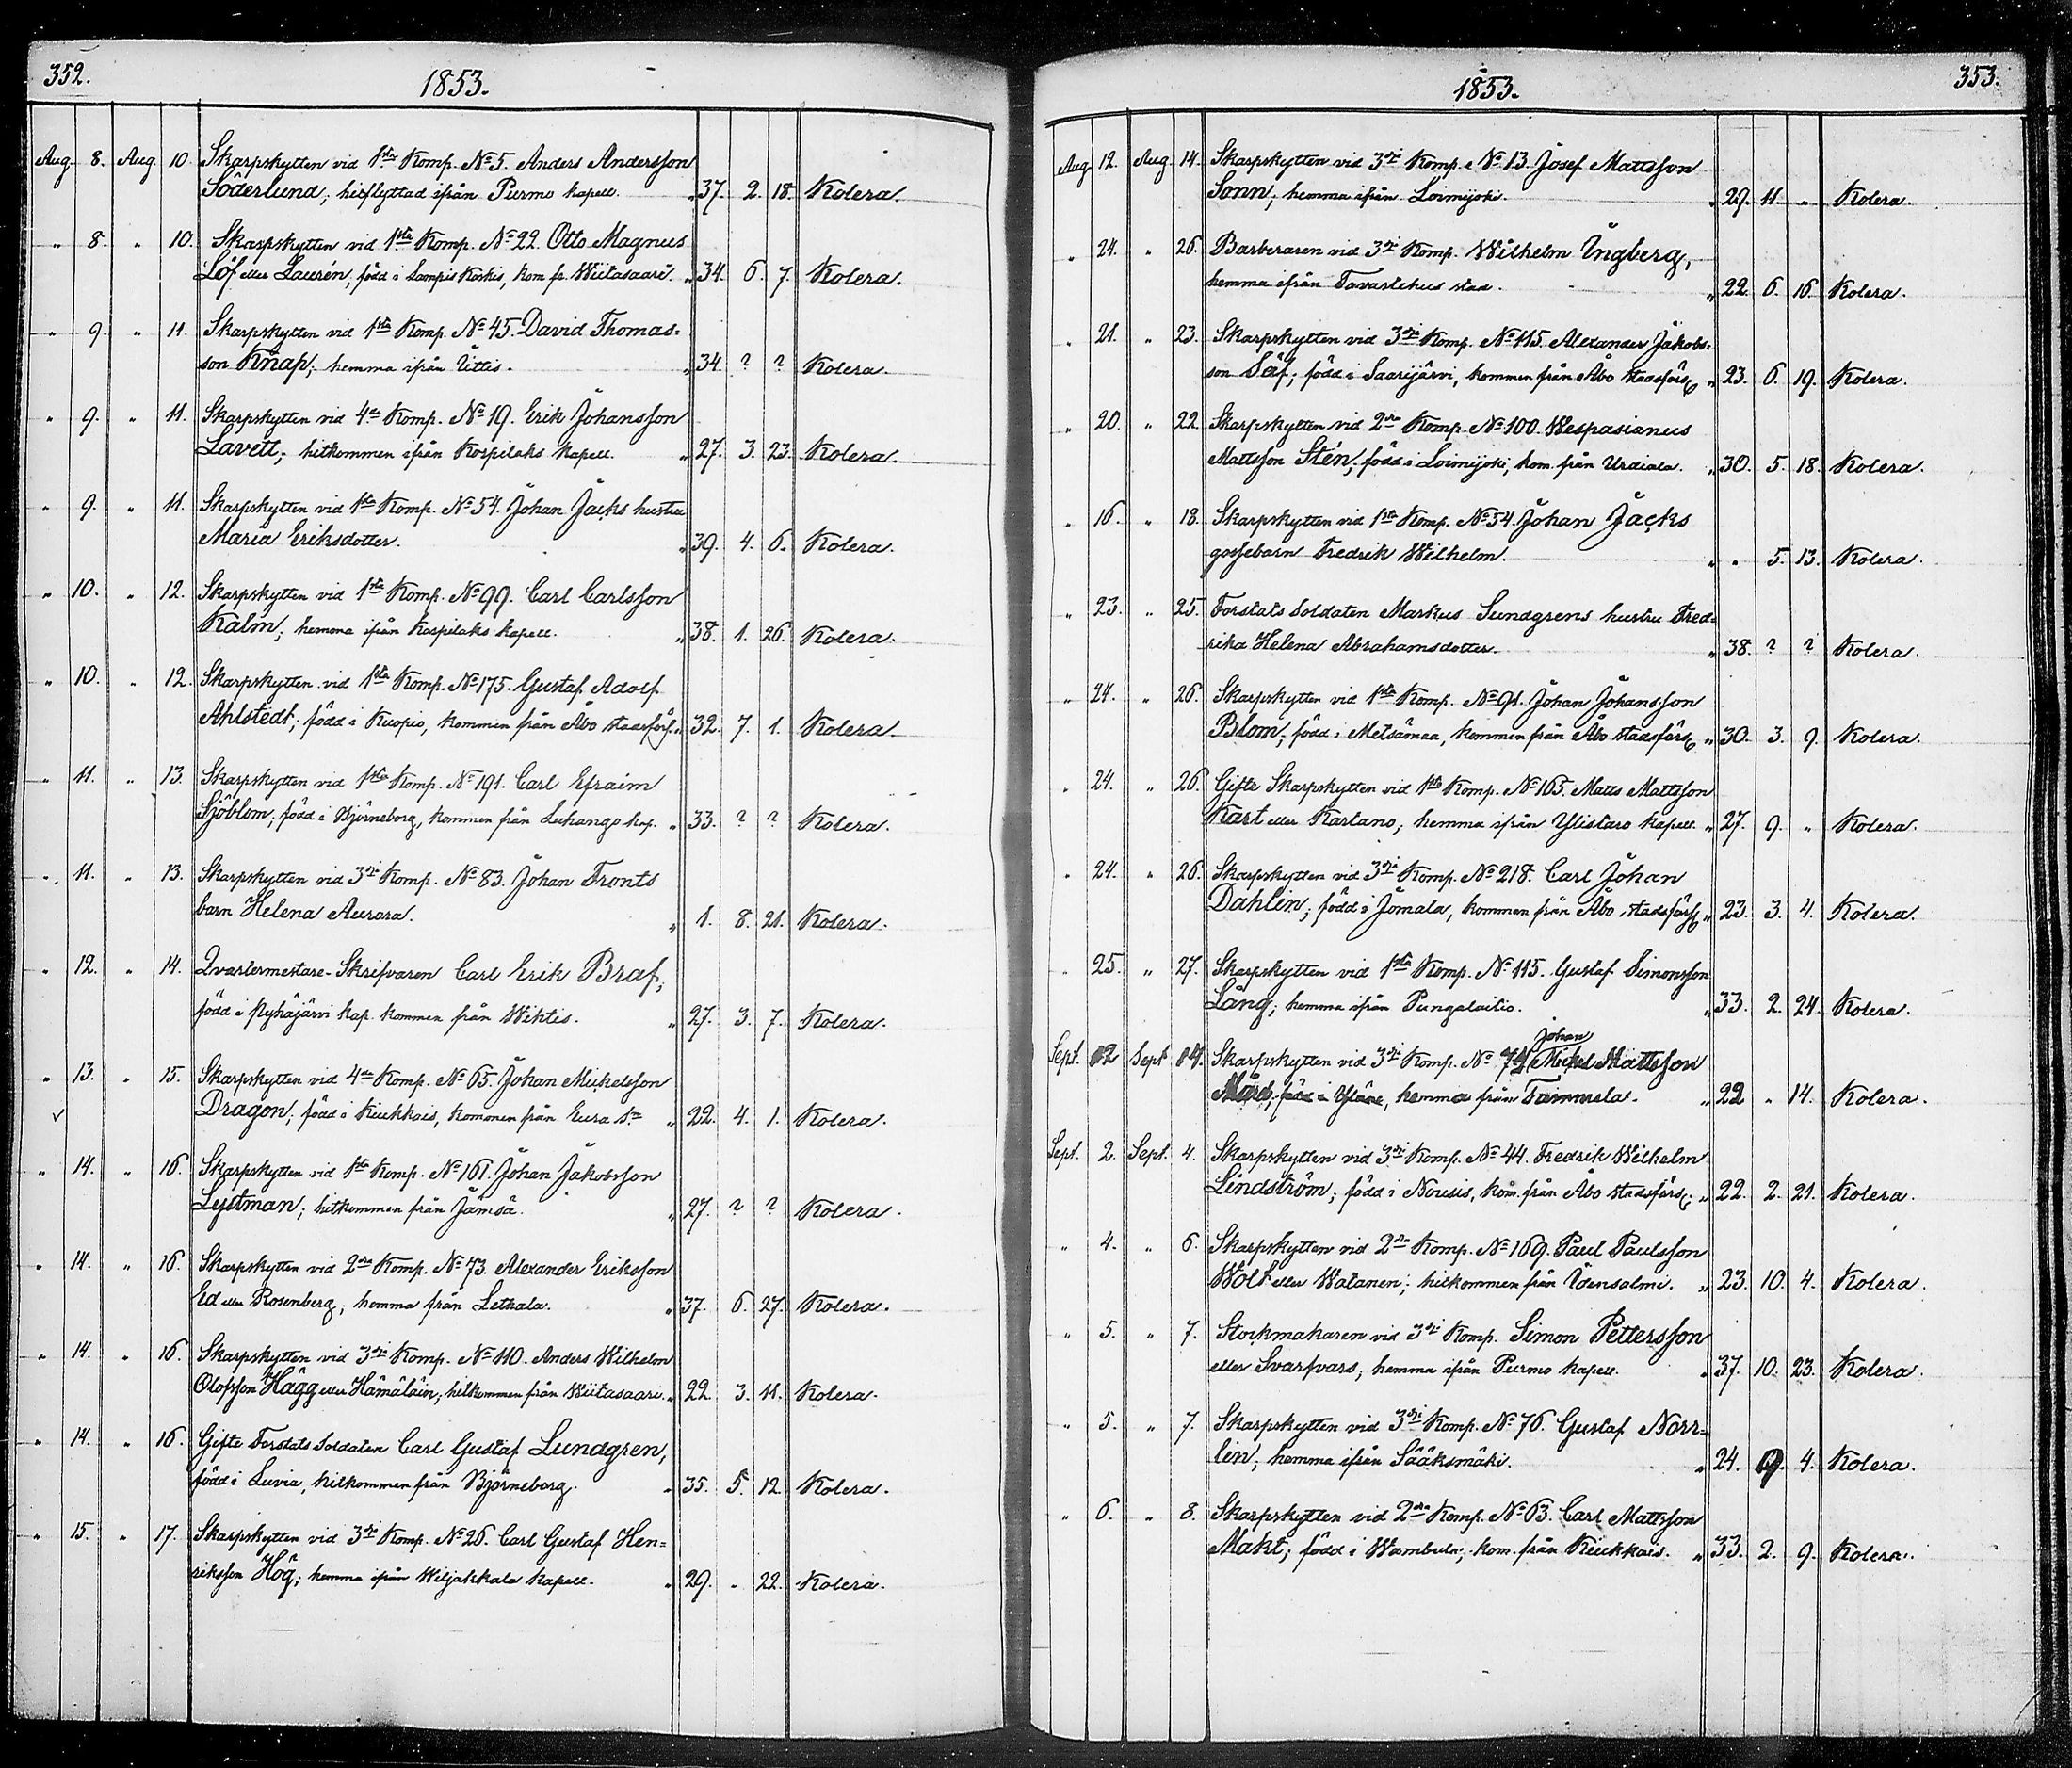 352.
1853.
Aug. 8. Aug. 10. Skarpskytten vid 1sta Komp. No 5. Anders Andersson
Söderlund, hitflyttad ifrån Purmo kapell. " 37. 2. 18. Kolera.
" 8. " 10. Skarpskytten vid 1sta Komp. No 22. Otto Magnus
Löf eller Laurén, född i Lampis Koskis, kom fr. Wiitasaari. " 34. 6. 7. Kolera.
" 9. " 11. Skarpskytten vid 1sta Komp. No 45. David Thomas=
son Knap; hemma ifrån Ittis. " 34. ? ? Kolera.
" 9. " 11. Skarpskytten vid 4de Komp. No 19. Erik Johansson
Lavett; hitkommen ifrån Korpilaks kapell. " 27. 3. 23. Kolera.
" 9. " 11. Skarpskytten vid 1sta Komp. No 54. Johan Jacks hustru
Maria Eriksdotter. " 39. 4. 6. Kolera.
" 10. " 12. Skarpskytten vid 1sta Komp. No 99. Carl Carlsson
Kalm; hemma ifrån Korpilaks kapell. " 38. 1. 26. Kolera.
" 10. " 12. Skarpskytten vid 1sta Komp. No 175. Gustaf Adolf
Ahlstedt; född i Kuopio, kommen från Åbo stadsförs. " 32. 7. 1. Kolera.
" 11. " 13. Skarpskytten vid 1sta Komp. No 191. Carl Efraim
Sjöblom; född i Björneborg, kommen från Luhango kap. " 33. ? ? Kolera.
" 11. " 13. Skarpskytten vid 3dje Komp. No 83. Johan Fronts
barn Helena Aurora. " 1. 8. 21. Kolera.
" 12. " 14. Qvartermestare-Skrifvaren Carl Erik Braf;
född i Pyhäjärvi kap. kommen från Wihtis. " 27. 3. 7. Kolera.
" 13. " 15. Skarpskytten vid 4de Komp. No 65. Johan Mickelsson
Dragon; född i Kiukkais, kommen från Eura Sn " 22. 4. 1. Kolera.
" 14. " 16. Skarpskytten vid 1sta Komp. No 161. Johan Jakobsson
Lystman; hitkommen från Jämsä. " 27. ? ? Kolera.
" 14. " 16. Skarpskytten vid 2dra Komp. No 73. Alexander Eriksson
Ed eller Rosenberg; hemma från Lethala. " 37. 6. 27. Kolera.
" 14. " 16. Skarpskytten vid 3dje Komp. No 110. Anders Wilhelm
Olofsson Hägg eller Hämäläin; hitkommen från Wiitasaari. " 22. 3. 11. Kolera.
" 14. " 16. Gifte Forstats Soldaten Carl Gustaf Lundgren,
född i Luvia, hitkommen från Björneborg. " 35. 5. 12. Kolera.
" 15. " 17. Skarpskytten vid 3dje Komp. No 26. Carl Gustaf Hen=
riksson Hög; hemma ifrån Wiljakkala kapell. " 29. " 22. Kolera.
353.
1853.
Aug. 12. Aug. 14. Skarpskytten vid 3dje Komp. No 13. Josef Mattsson
Sonn; hemma ifrån Loimijoki. " 29. 11. " Kolera.
" 24. " 26. Barberaren vid 3dje Komp. Wilhelm Ingberg,
hemma ifrån Tavastehus stad. " 22. 6. 16. Kolera.
" 21. " 23. Skarpskytten vid 3dje Komp. No 115. Alexander Jakobs=
son Säf; född i Saarijärvi, kommen från Åbo stadsförs " 23. 6. 19. Kolera.
" 20. " 22. Skarpskytten vid 2dra Komp. No 100. Wespasianus
Mattsson Stén; född i Loimijoki, kom. från Urdiala. " 30. 5. 18. Kolera.
" 16. " 18. Skarpskytten vid 1sta Komp. No 54. Johan Jacks
gossebarn Fredrik Wilhelm. " " 5. 13. Kolera.
" 23. " 25. Forstats Soldaten Markus Sundgrens hustru Fred=
rika Helena Abrahamsdotter. " 38. ? ? Kolera.
" 24. " 26. Skarpskytten vid 1sta Komp. No 91. Johan Johansson
Blom; född i Metsämaa, kommen från Åbo stadsförs " 30. 3. 9. Kolera.
" 24. " 26. Gifte Skarpskytten vid 1sta Komp. No 165. Matts Mattsson
Kart eller Kartano; hemma ifrån Ylistaro kapell. " 27. 9. " Kolera.
" 24. " 26. Skarpskytten vid 3dje Komp. No 218. Carl Johan
Dahlin; född i Jomala, kommen från Åbo stadsförs " 23. 3. 4. Kolera.
" 25. " 27. Skarpskytten vid 1sta Komp. No 115. Gustaf Simonsson
Lång; hemma ifrån Pungalaitio. " 33. 2. 24. Kolera.
Johan
Sept. 2 Sept 4. Skarpskytten vid 3dje Komp. No 74 Mickel Mattsson
Mård; född i Yläne, hemma från Tammela. " 22 " 14. Kolera.
Sept. 2. Sept. 4. Skarpskytten vid 3dje Komp. No 44. Fredrik Wilhelm
Lindström; född i Nousis, kom. från Åbo stadsförs. " 22. 2. 21. Kolera.
" 4. " 6. Skarpskytten vid 2dra Komp. No 169. Paul Paulsson
Wolt eller Watanen; hitkommen från Idensalmi. " 23. 10. 4. Kolera.
" 5. " 7. Stockmakaren vid 3dje Komp. Simon Pettersson
eller Svarfvars; hemma ifrån Purmo kapell. " 37. 10. 23. Kolera.
" 5. " 7. Skarpskytten vid 3dje Komp. No 76. Gustaf Norr=
lin; hemma ifrån Sääksmäki. " 24. 9. 4. Kolera.
" 6. " 8. Skarpskytten vid 2dra Komp. No 63. Carl Mattsson
Makt; född i Wambula; kom. från Kiukkais. " 33. 2. 9. Kolera.